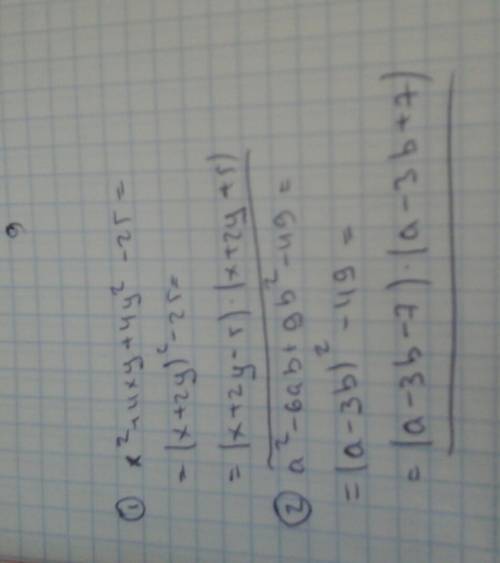 9
① x²+4xy+4y²-25=
=(x+2y)²-25=
=(x+2y-5)·(x+2y+5)
② a²-6ab+9b²-49=
=(a-3b)²-49=
=(a-3b-7)·(a-3b+7)